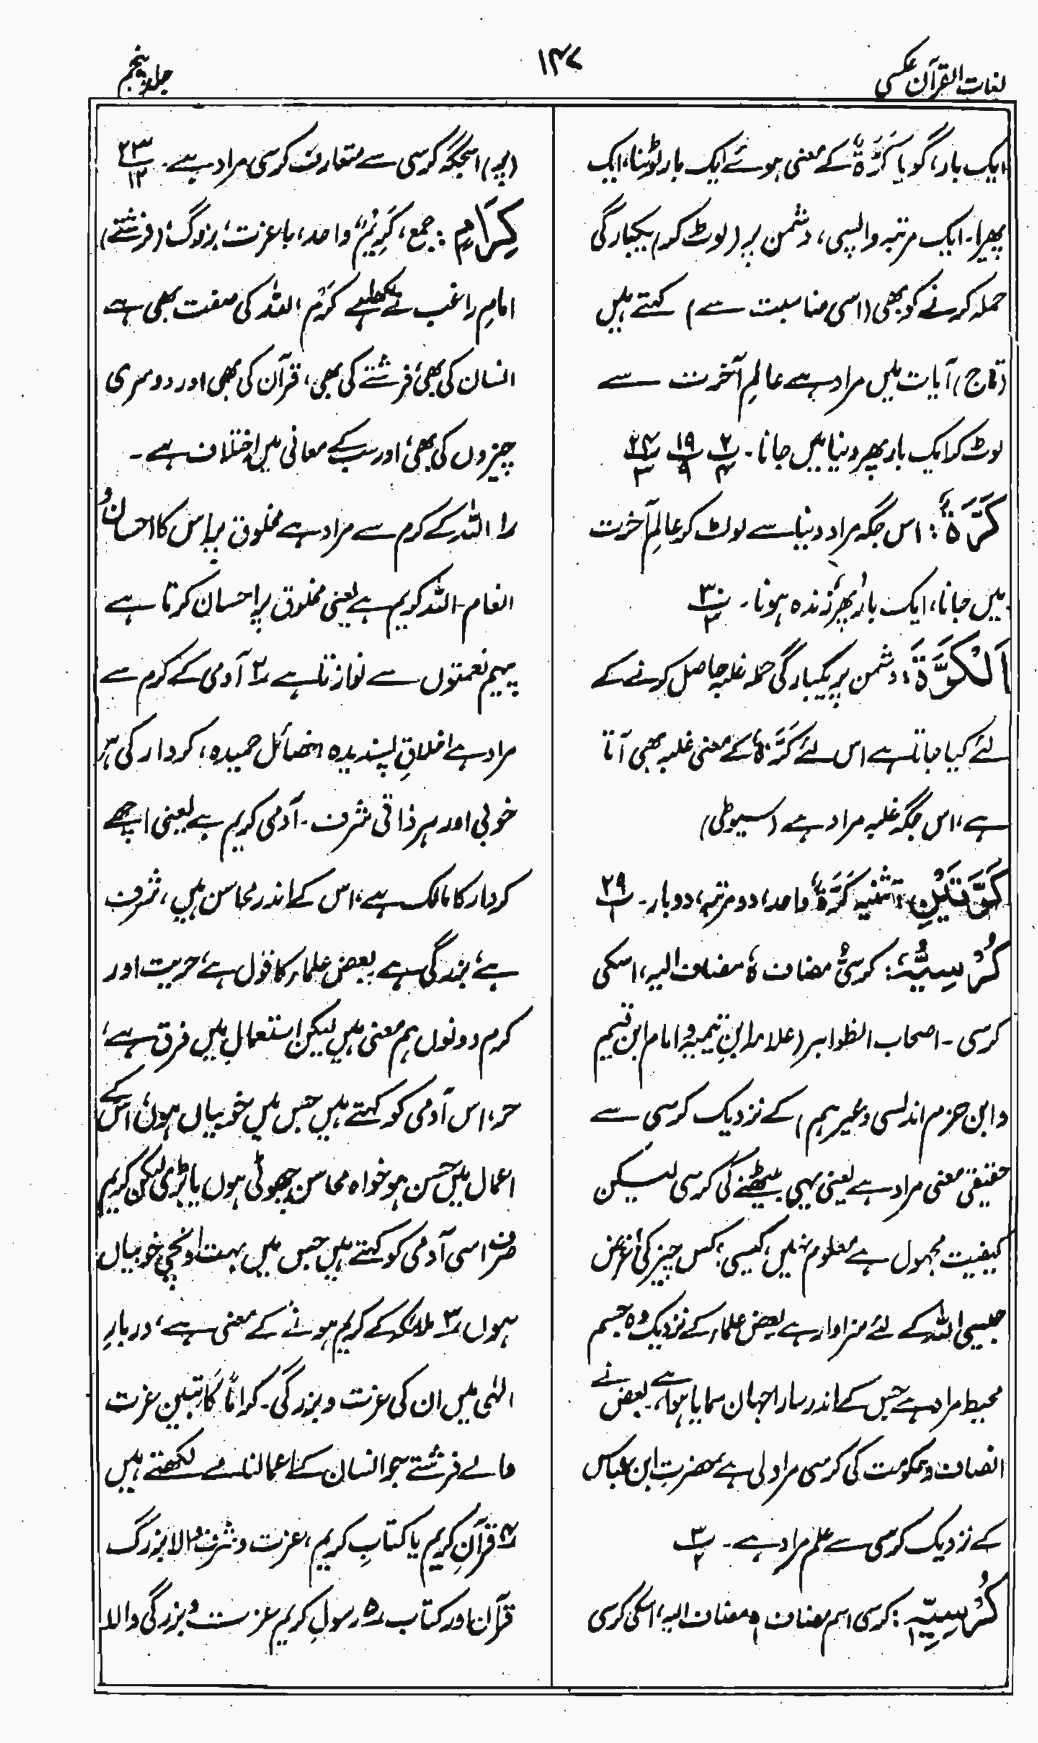 لغات القرآن عکسی
۱۴۷
جلد پنجم
ایک بار، گویا کَرَّۃٌ کے معنی ہوئے ایک بار لوٹنا، ایک
پھیرا۔ ایک مرتبہ واپسی، دشمن پر (لوٹ کر) یکبارگی
حملہ کرنے کو بھی (اسی مناسبت سے) کہتے ہیں
(تاج) آیات میں مراد ہے عالمِ آخرت سے
لوٹ کر ایک بار پھر دنیا میں جانا۔
کَرَّۃٌ: اس جگہ مراد دنیا سے لوٹ کر عالمِ آخرت
میں جانا، ایک بار پھر زندہ ہونا۔
اَلْکَرَّۃَ: دشمن پر یکبارگی حملہ غلبہ حاصل کرنے کے
لئے کیا جاتا ہے اس لئے کَرَّۃٌ کے معنی غلبہ بھی آتا
ہے، اس جگہ غلبہ مراد ہے (سیوطی)
کَرَّتَیْنِ: تثنیہ کَرَّۃٌ واحد، دو مرتبہ، دو بار۔ ۲۹
کُرْسِیُّہٗ: کرسیُّ مضاف ہٗ مضاف الیہ، اسکی
کرسی۔ اصحاب الظواہر (علامہ ابن تیمیہ و امام ابن قیم
و ابن حزم اندلسی وغیرہم) کے نزدیک کرسی سے
حقیقی معنی مراد ہے یعنی یہی بیٹھنے کی کرسی لیکن
کیفیت مجہول ہے معلوم نہیں کیسی، کس چیز کی، غرض
جیسی اللہ کے لئے سزاوار ہے بعض علماء کے نزدیک وہ جسم
محیط مراد ہے جس کے اندر سارا جہان سمایا ہوا ہے۔ بعض نے
انصاف و حکومت کی کرسی مراد لی ہے حضرت ابن عباس
کے نزدیک کرسی سے علم مراد ہے۔
کُرْسِیِّہٖ: کرسی اسم مضاف ہٖ مضاف الیہ، اسکی کرسی
اسجگہ کرسی سے متعارف کرسی مراد ہے۔ ۲۳ ۱۲
کِرَامٍ: جمع، کَرِیْمٌ واحد، باعزت، بزرگ، (فرشتے)
امام راغب نے لکھا ہے کرم اللہ کی صفت بھی ہے
انسان کی بھی، فرشتے کی بھی، قرآن کی بھی اور دوسری
چیزوں کی بھی، اور سب کے معانی میں اختلاف ہے۔
۱ اللہ کے کرم سے مراد ہے مخلوق پر اس کا احسان و
انعام۔ اللہ کریم ہے یعنی مخلوق پر احسان کرتا ہے
پیہم نعمتوں سے نوازتا ہے ۲ آدمی کے کرم سے
مراد ہے اخلاقِ پسندیدہ خصائل حمیدہ، کردار کی ہر
خوبی اور ہر ذاتی شرف۔ آدمی کریم ہے یعنی اچھے
کردار کا مالک ہے، اس کے اندر محاسن ہیں، شرف
ہے، بزرگی ہے بعض علماء کا قول ہے، حریت اور
کرم دونوں ہم معنی ہیں لیکن استعمال میں فرق ہے،
حر، اس آدمی کو کہتے ہیں جس میں خوبیاں ہوں، اس کے
اعمال میں حسن ہو خواہ محاسن چھوٹی ہوں یا بڑی لیکن کریم
صرف اسی آدمی کو کہتے ہیں جس میں بہت اونچی خوبیاں
ہوں ۳ ملائکہ کے کریم ہونے کے معنی ہے، دربارِ
الٰہی میں ان کی عزت و بزرگی۔ کراماً کاتبین عزت
والے فرشتے جو انسان کے اعمالنامے لکھتے ہیں
۴ قرآنِ کریم یا کتابِ کریم، عزت و شرف والا بزرگ
قرآن اور کتاب ۵ رسولِ کریم عزت و بزرگی والا